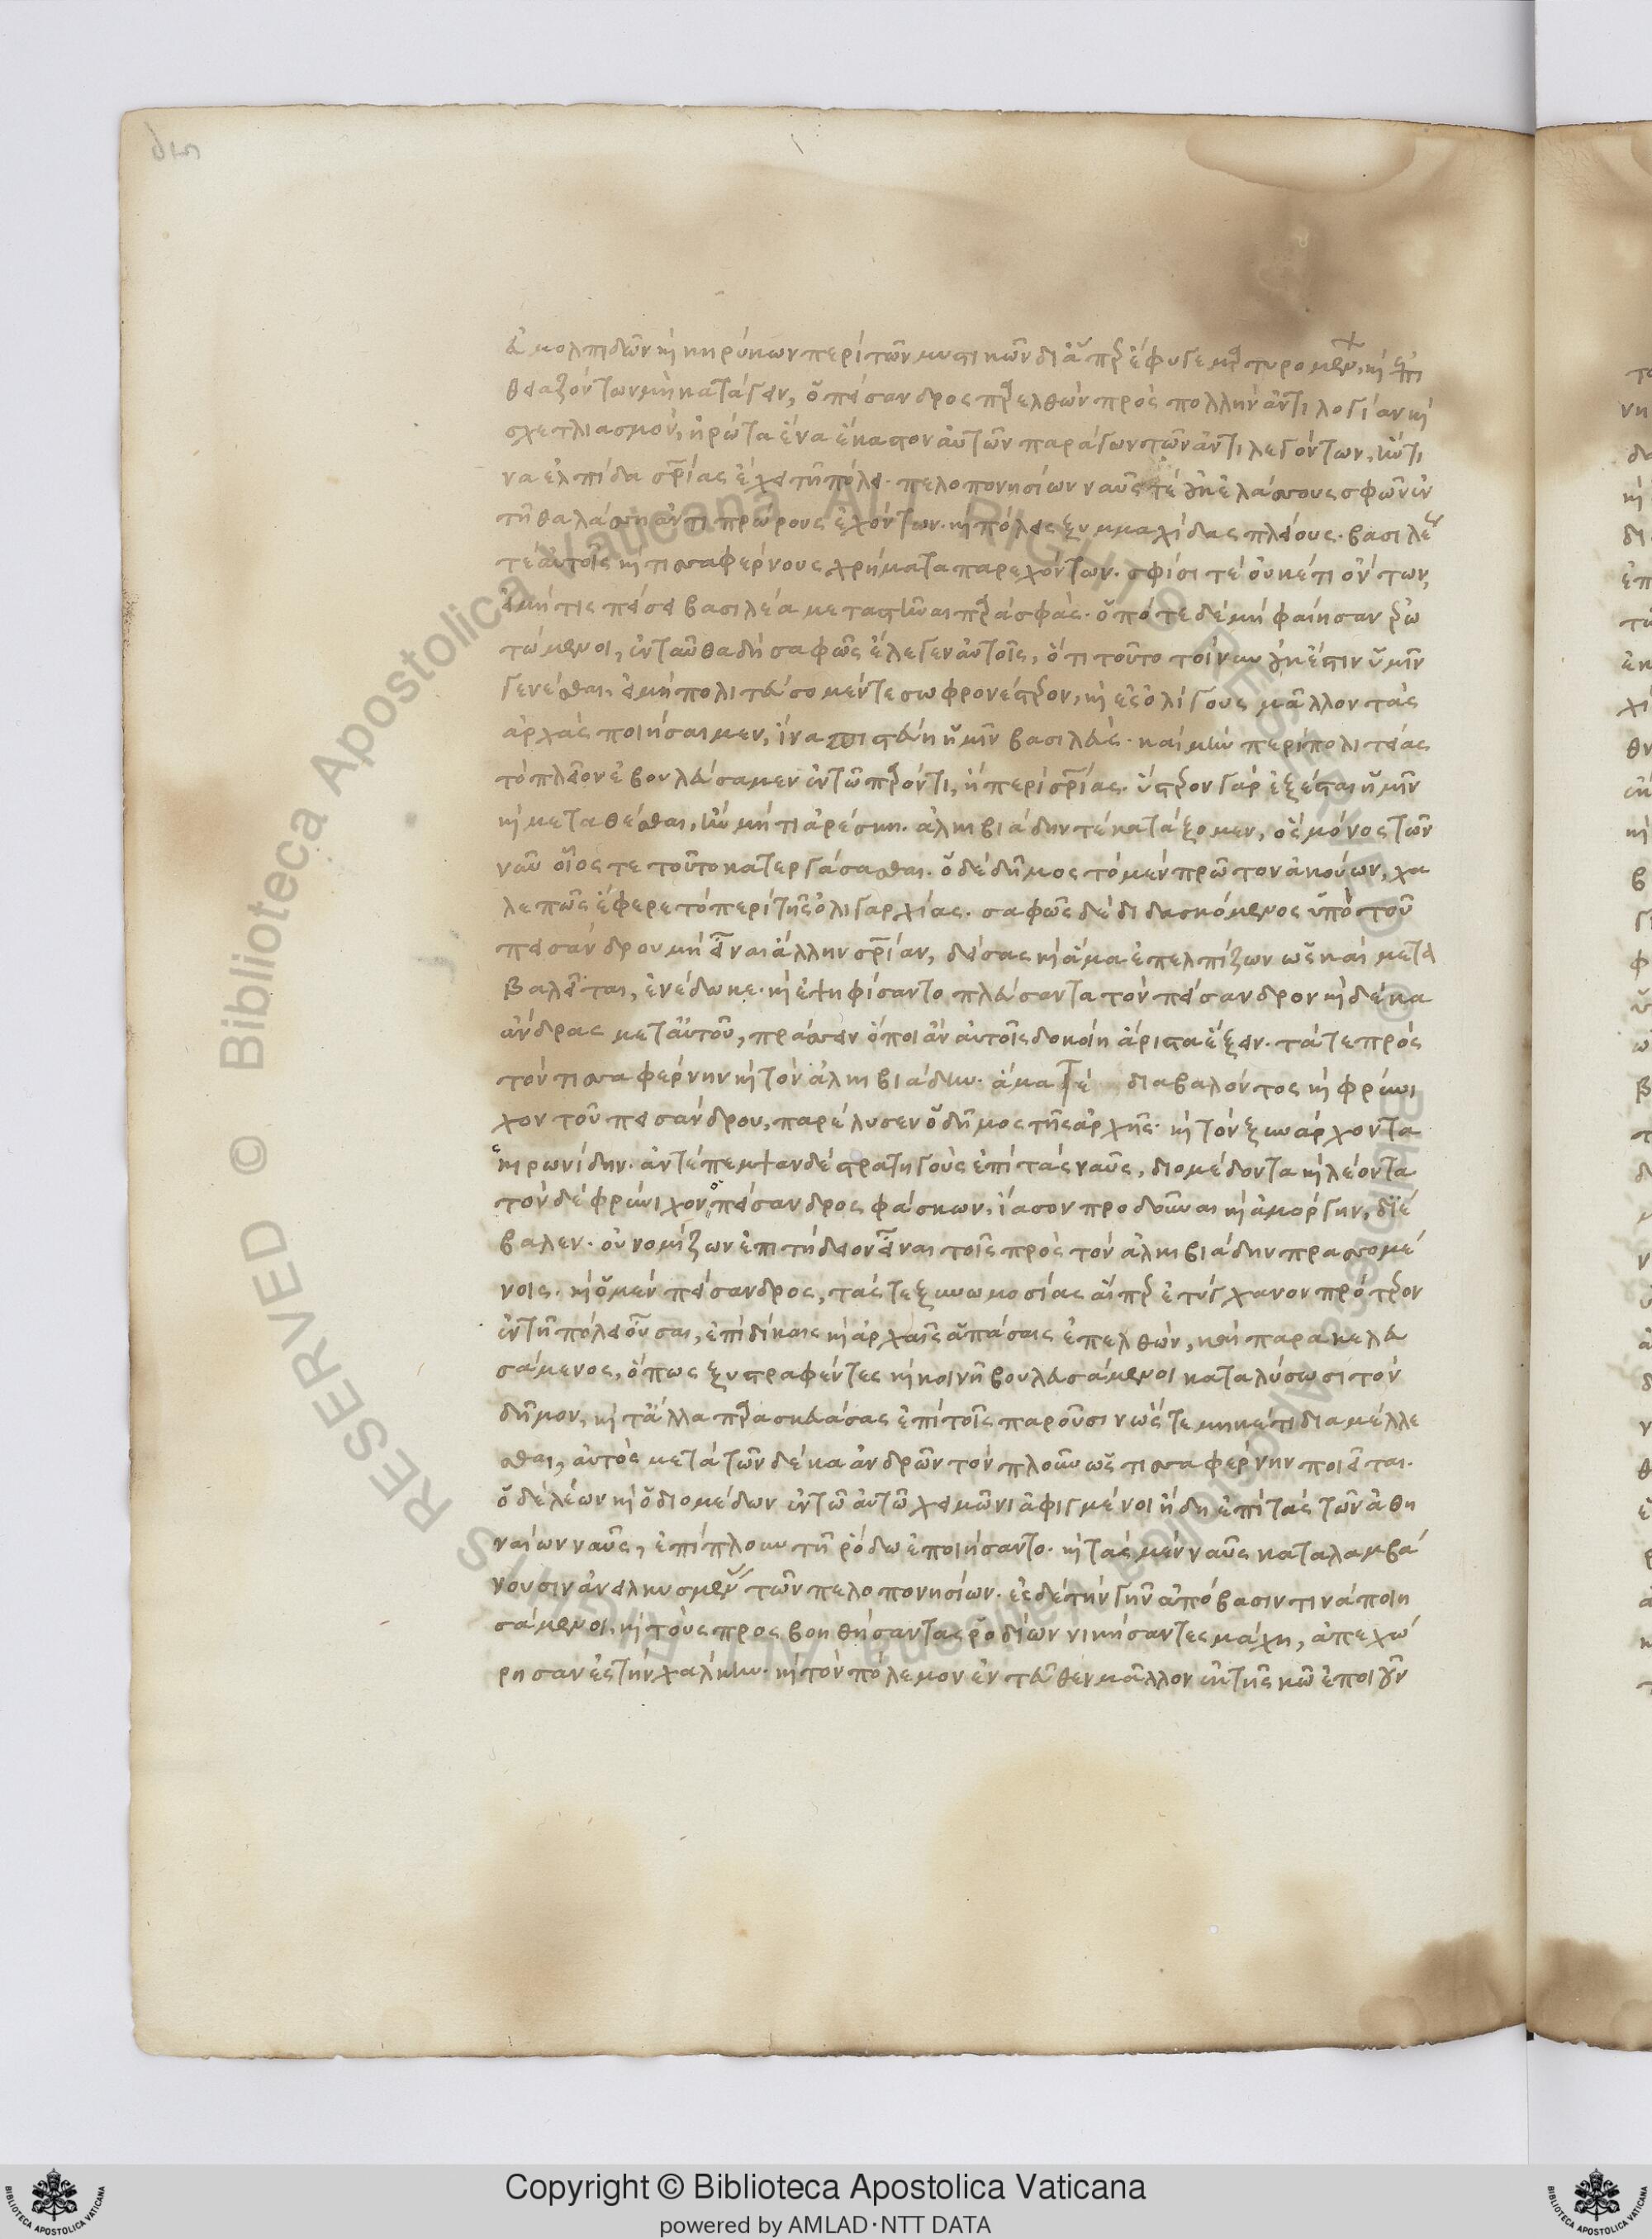 εὐμολπιδῶν καὶ κηρύκων περὶ τῶν μυστικῶν δι ἅπερ ἔφυγε μαρτυρομένων, καὶ ἐπι
θειαζόντων μὴ κατάγειν, ὁ πείσανδρος παρελθὼν πρὸς πολλὴν ἀντιλογίαν καὶ
σχετλιασμὸν, ἠρώτα ἕνα ἕκαστον αὐτῶν παράγων τῶν ἀντιλεγόντων, ἥντι
να ἐλπίδα σωτηρίας ἔχει τῇ πόλει· πελοπονησίων ναῦς τὲ οὐκ ἐλάσσους σφῶν ἐν
τῇ θαλάσσῃ ἀντιπρώρους ἐχόντων· καὶ πόλεις ξυμμαχίδας πλείους· βασιλέως
τὲ αὐτοῖς καὶ τισσαφέρνους χρήματα παρεχόντων· σφίσι τὲ οὐκέτι ὄντων,
εἰ μή τις πείσει βασιλέα μεταστῆναι παρὰ σφᾶς· ὁπότε δὲ μὴ φαίησαν ἐρω
τώμενοι, ἐνταῦθα δὴ σαφῶς ἔλεγεν αὐτοῖς, ὅτι τοῦτο τοίνυν οὐκ ἔστιν ὑμῖν
γενέσθαι, εἰ μὴ πολιτεύσομέν τε σωφρονέστερον, καὶ ἐς ὀλίγους μᾶλλον τὰς
ἀρχὰς ποιήσαιμεν, ἵνα πιστεύῃ ἡμῖν βασιλεύς· καὶ μὴν περὶ πολιτείας
τὸ πλεῖον ἐβουλεύσαμεν ἐν τῷ παρόντι, ἢ περὶ σωτηρίας· ὕστερον γὰρ ἐξέσται ἡμῖν
καὶ μεταθέσθαι, ἢν μή τι ἀρέσκῃ. ἀλκιβιάδην τὲ κατάξομεν, ὃς μόνος τῶν
νῦν οἷός τε τοῦτο κατεργάσασθαι. ὁ δὲ δῆμος τὸ μὲν πρῶτον ἀκούων, χα
λεπῶς ἔφερε τὸ περὶ τῆς ὀλιγαρχίας. σαφῶς δὲ διδασκόμενος ὑπὸ τοῦ
πεισάνδρου μὴ εἶναι ἄλλην σωτηρίαν, δείσας καὶ ἅμα ἐπελπίζων ὡς καὶ μετα
βαλεῖται, ἐνέδωκε. καὶ ἐψηφίσαντο πλεύσαντα τὸν πείσανδρον καὶ δέκα
ἄνδρας μετ αὐτοῦ, πράσσειν ὅποι ἂν αὐτοῖς δοκοίη ἄριστα ἕξειν. τά τε πρὸς
τὸν τισσαφέρνην καὶ τὸν ἀλκιβιάδην. ἅμα τὲ διαβαλόντος καὶ φρύνι
χον τοῦ πεισάνδρου, παρέλυσεν ὁ δῆμος τῆς ἀρχῆς· καὶ τὸν ξυνάρχοντα
σκιρωνίδην· ἀντέπεμψαν δὲ στρατηγοὺς ἐπὶ τὰς ναῦς, διομέδοντα καὶ λέοντα
τὸν δὲ φρύνιχον ὁ πείσανδρος φάσκων, ἴασον προδοῦναι καὶ ἀμόργην, διέ
βαλεν. οὐ νομίζων ἐπιτήδειον εἶναι τοῖς πρὸς τὸν ἀλκιβιάδην πρασσομέ
νοις. καὶ ὁ μὲν πείσανδρος, τάς τε ξυνωμοσίας αἵπερ ἐτύγχανον πρότερον
ἐν τῇ πόλει οὖσαι, ἐπὶ δίκαις καὶ ἀρχαῖς ἁπάσαις ἐπελθὼν, καὶ παρακελευ
σάμενος, ὅπως ξυστραφέντες καὶ κοινῇ βουλευσάμενοι καταλύσωσι τὸν
δῆμον, καὶ τἄλλα παρασκευάσας ἐπὶ τοῖς παροῦσιν ὥς τε μηκέτι διαμέλλε
σθαι, αὐτὸς μετὰ τῶν δέκα ἀνδρῶν τὸν πλοῦν ὡς τισσαφέρνην ποιεῖται.
ὁ δὲ λέων καὶ ὁ διομέδων ἐν τῷ αὐτῷ χειμῶνι ἀφιγμένοι ἤδη ἐπὶ τὰς τῶν ἀθη
ναίων ναῦς, ἐπίπλουν τῇ ῥόδῳ ἐποιήσαντο. καὶ τὰς μὲν ναῦς καταλαμβά
νουσιν ἀνειλκυσμένας τῶν πελοπονησίων. ἐς δὲ τὴν γῆν ἀπόβασίν τινα ποιη
σάμενοι, καὶ τοὺς προσβοηθήσαντας ῥοδίων νικήσαντες μάχῃ, ἀπεχώ
ρησαν ἐς τὴν χάλκην. καὶ τὸν πόλεμον ἐντεῦθεν μᾶλλον ἐκ τῆς κῶ ἐποιοῦν
Biblioteca Apostolica Vaticana ALL RIGHTS RESERVED ©
Copyright © Biblioteca Apostolica Vaticana
powered by AMLAD·NTT DATA